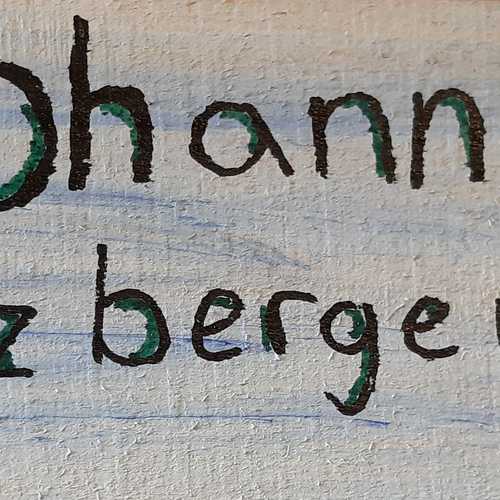 ohann
zberge